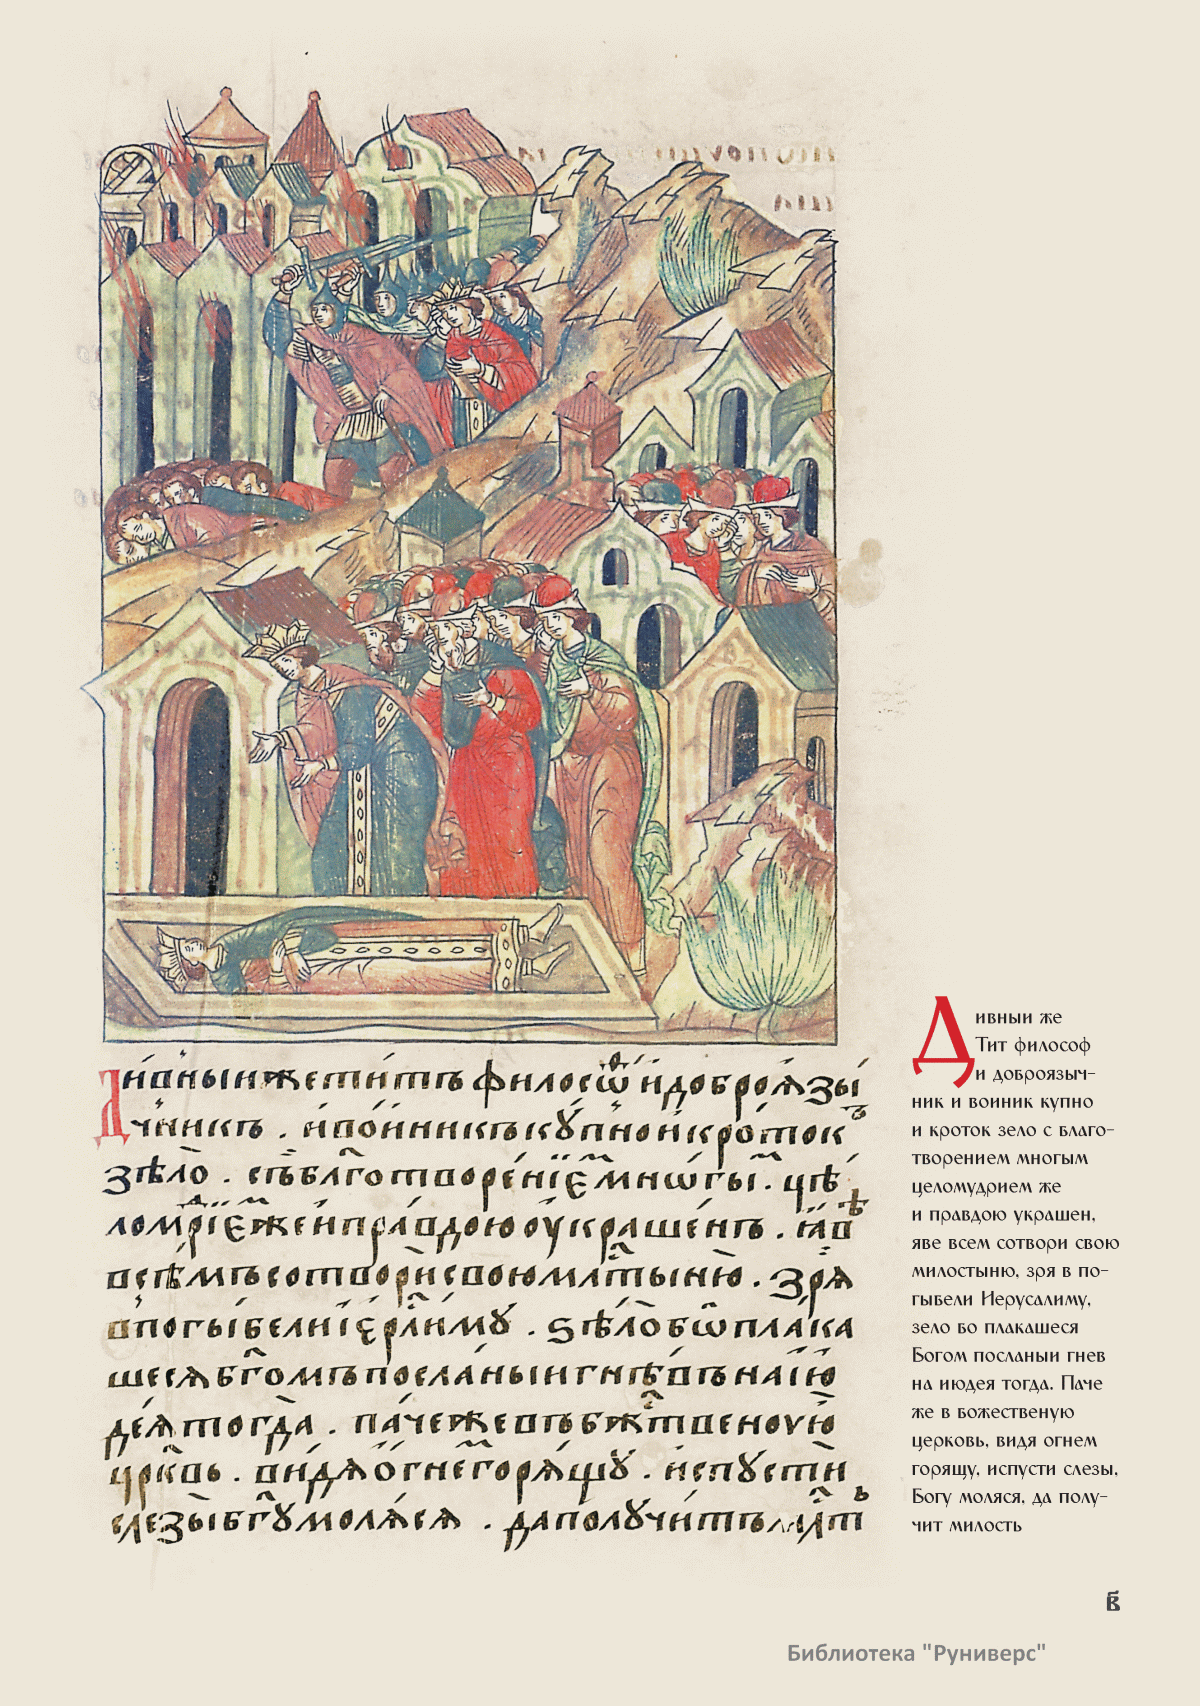 Дивныи же титъ философѡ и доброѧзы
чникъ . и воиникъ кꙋпно и кротокъ
зѣло . съ благотворенїємъ мнѡгы . цѣ
ломдрїємже и правдою оукрашенъ . ꙗвѣ
всѣмъ сотвори свою млтыню . зрѧ
в погыбели їєрлимꙋ . ѕѣло бѡ плака
шесѧ бгомъ посланыи гнѣвъ на їю
деѧ тогда . паче же въ бжтвеную
црквь . видѧ огнем горѧщꙋ . испꙋсти
слезы бгꙋ молѧсѧ . да полꙋчитъ
Дивныи же
Тит философ
и доброязыч-
ник и воиник купно
и кроток зело с благо-
творением многым
целомудрием же
и правдою украшен,
яве всем сотвори свою
милостыню, зря в по-
гыбели Иерусалиму,
зело бо плакашеся
Богом посланыи гнев
на июдея тогда. Паче
же в божественую
церковь, видя огнем
горящу, испусти слезы,
Богу моляся, да полу-
чит милость
Библиотека "Руниверс"